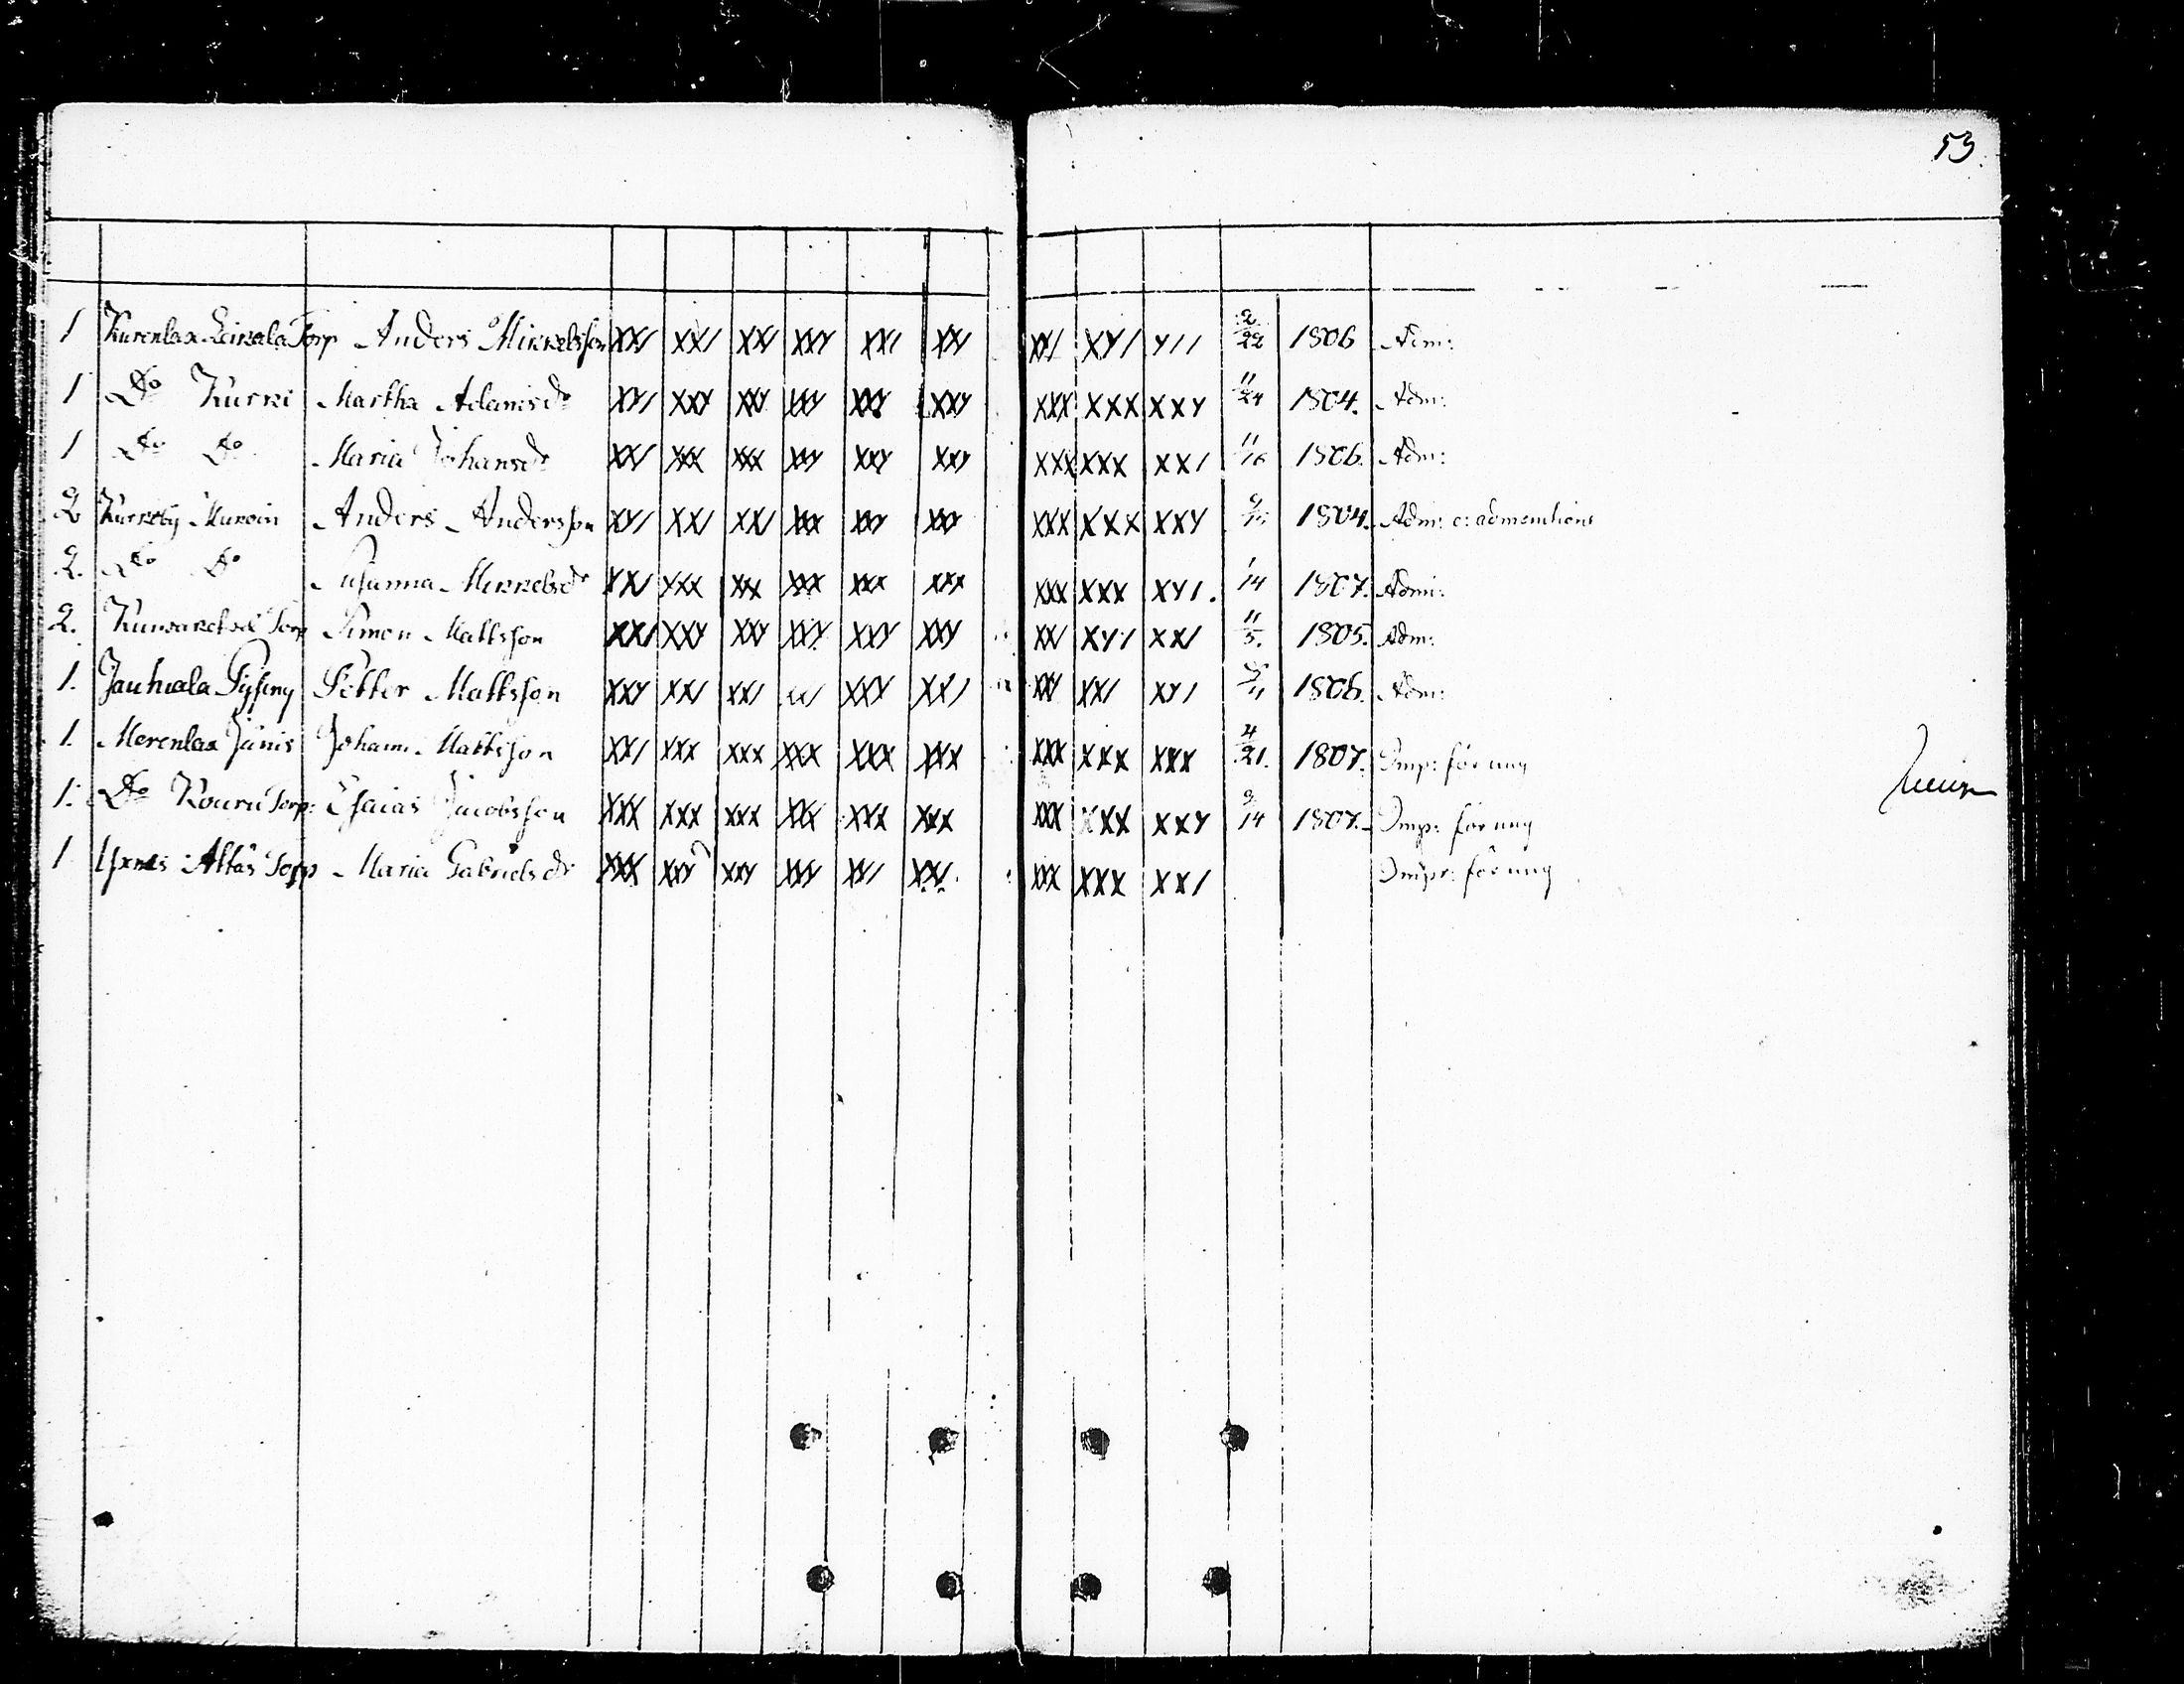 53.
1 Kurenlax Leikala Torp Anders Mikkelsson XX/ XX/ XX/ XXY XX/ XX/ XX/ XY/ Y// 2/22 1806 Adm:
1 Do Kurki Martha Adamsdr XY/ XXY XXY XXY XXY XXY XXX XXX XXY 11/24 1804. Adm:
1 Do Do Maria Johansdr XX/ XXX XXX XXY XXY XXY XXX XXX XX/ 11/16 1806. Adm:
2 Muroin Anders Andersson XY/ XX/ XX/ XXX XXY XXX XXX XXX XXY 1804. Adm: c: admonitione
2. Do Do Susanna Mikkelsdr XX/ XXX XXX XXX XXX XXX XXX XXX XY/. 1/14 1807. Adm:
2. Torp Simon Mattsson XX/ XXY XXY XXY XXY XXY XX/ XY/ XX/ 11/5. 1805. Adm:
1. Jauhiala Pyssny Petter Mattsson XXY XX/ XX/ XXY XX/ XX/ XX/ XY/ 1806. Adm:
1. Merenlax Junis Johan Mattsson XX/ XXX XXX XXX XXX XXX XXX XXX XXX 4/21. 1807. Imp: för ung
1. Do Kouru Torp: Esaias Jacobsson XXX XXX XXX XXX XXX XXX XXX XXX XXY 9/14 1807. Imp: för ung
1 Torp Maria Gabrielsdr XXX XXY XXY XXY XX/ XX/. XXX XXX XX/ Impr: för ung